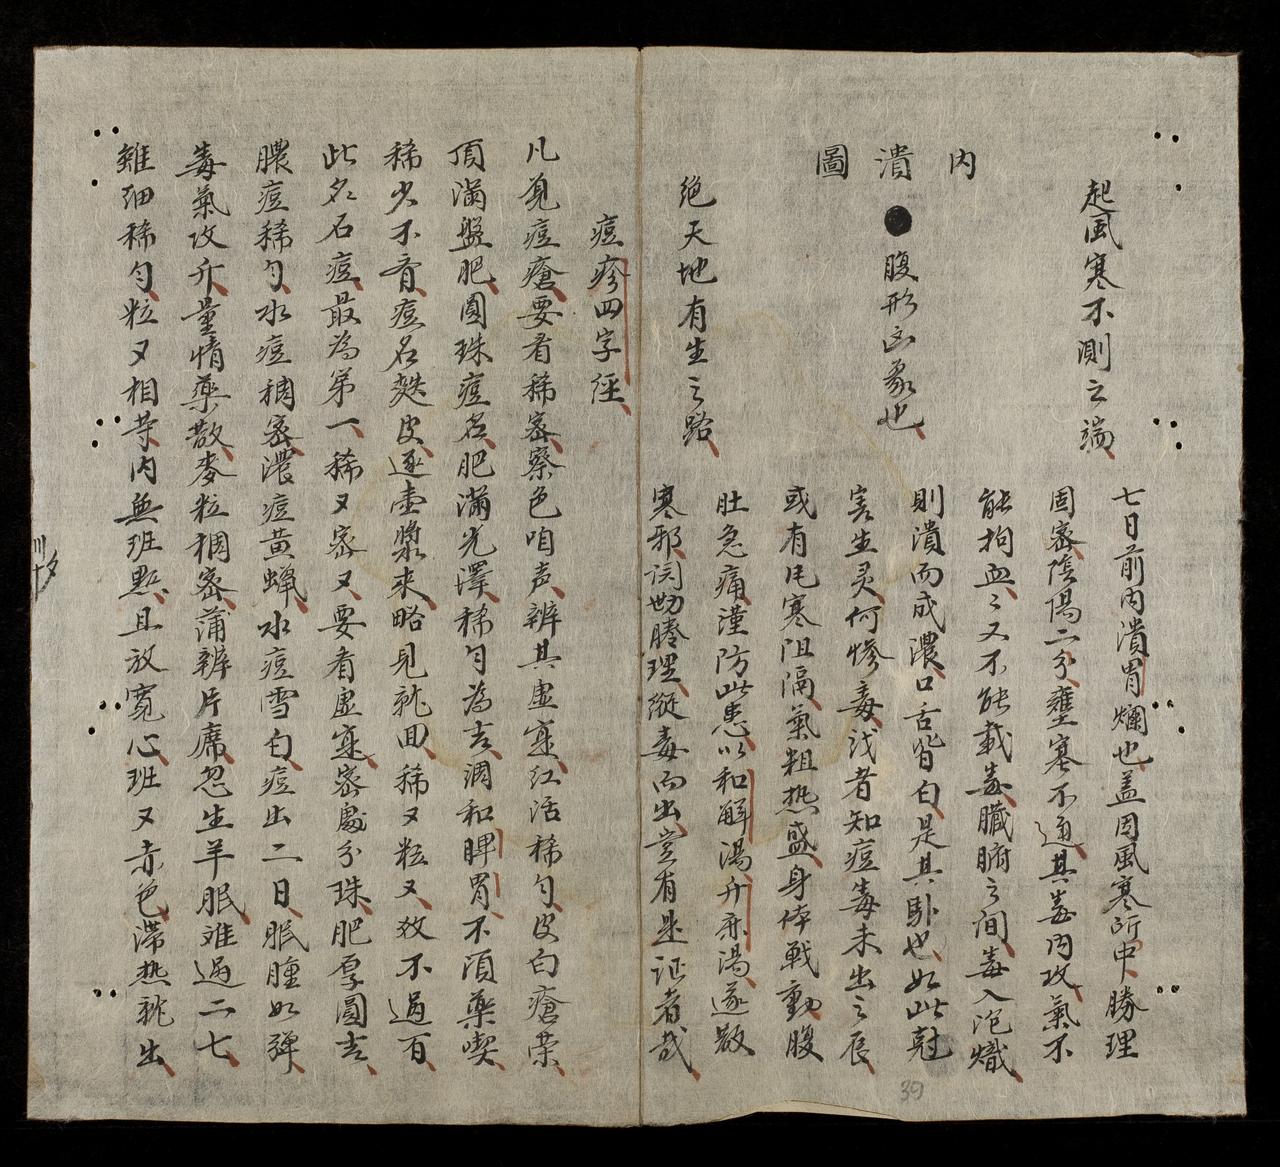 起風寒不測之端
內潰圖
腹形凶象也
絕天地有生之路
七日前內潰胃爛也盖因風寒所中勝理
固密陰陽二分壅塞不通其毒內攻氣不
能拘血〻又不能載毒臟腑之間毒入泡熾
則潰而成濃口舌皆白是其卧也如此冠
害生灵何慘毒哉者知痘毒未出之辰
或有凡寒阻隔氣粗热盛身体戰動腹
肚急痛謹防此患以和解湯升麻湯遂散
寒邪問勘腠理縱毒而出豈有是証者哉
痘疹四字經
凡覓痘瘡要看稀密察色咱声辨其虛寔紅活稀勻皮白瘡荣
頂滿盤肥圓珠痘名肥滿光澤稀勻為吉調和脾胃不須藥喫
稀少不育痘名麩皮逐壺漿來略見就回稀又粒又效不過百
此名石痘最為第一稀又密又要看虛寔密處分珠肥厚圓吉
膿痘稀勻水痘稠密濃痘黃蠟水痘雪白痘出二日眠腫如彈
毒氣攻升量情藥散麥粒稠密蒲辨片席忽生羊眠难過二七
雖细稀勻粒又相等内無班㸃且放寬心班又赤色滯热就出
39